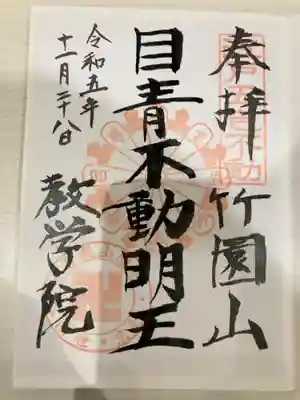 奉拝
竹園山
目青不動明王
令和五年
十一月二十八日
教学院